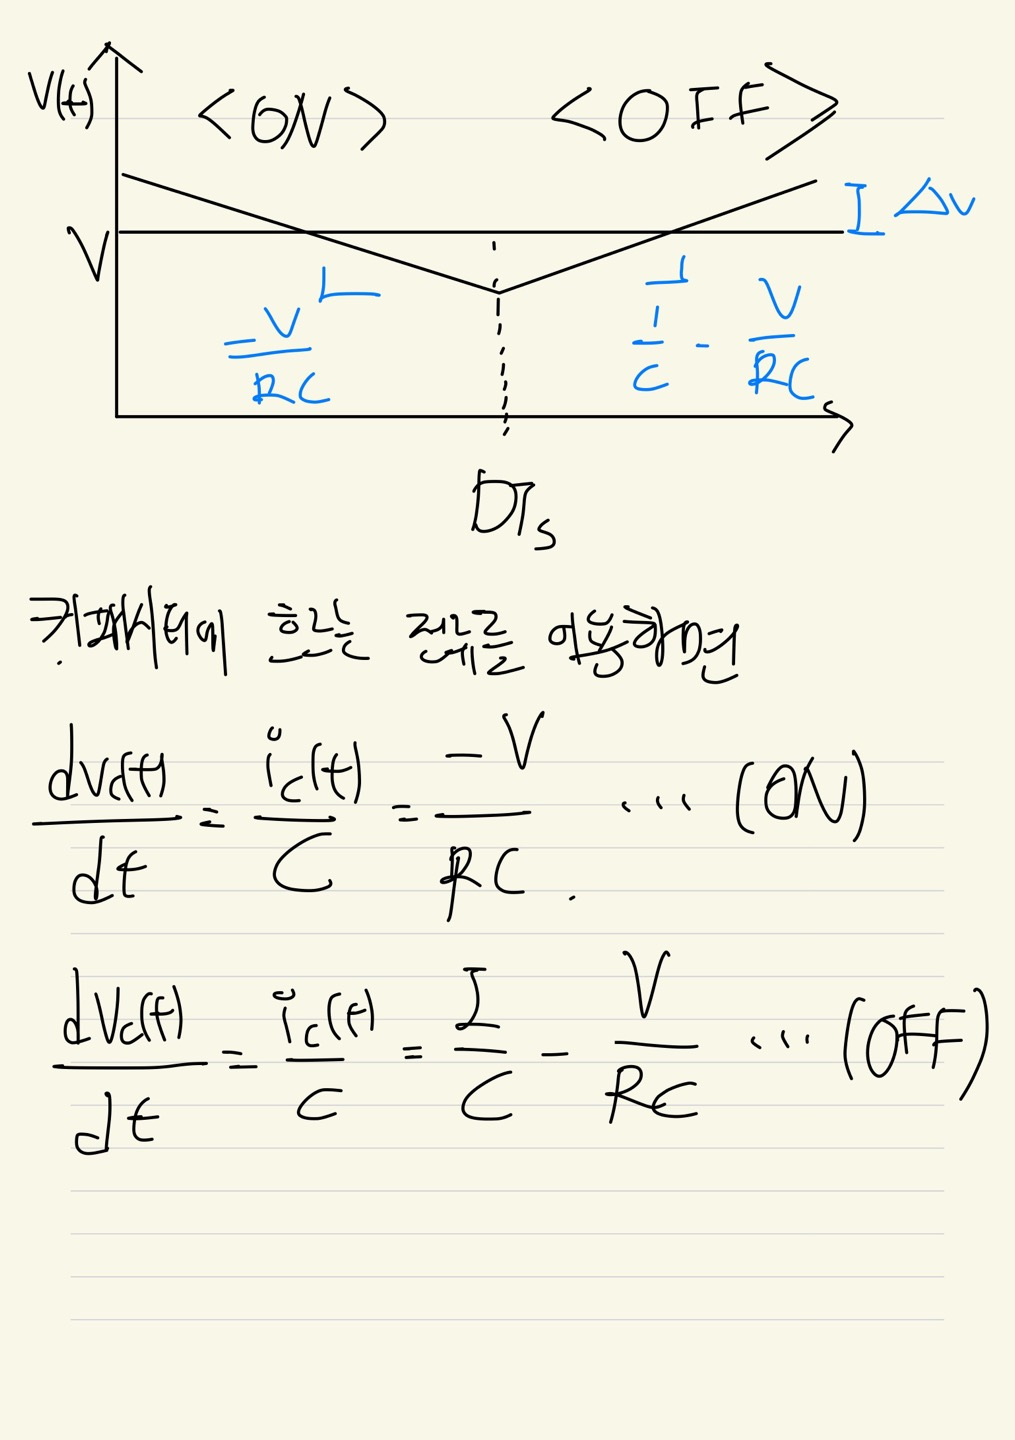 V(t) <ON> <OFF>
V I Δv
= V/RC 1/C - V/RC
DTs
커패시터에 흐르는 전류를 이용하면
dVc(t)/dt = ic(t)/C = -V/RC ... (ON)
dVc(t)/dt = ic(t)/C = I/C - V/RC ... (OFF)